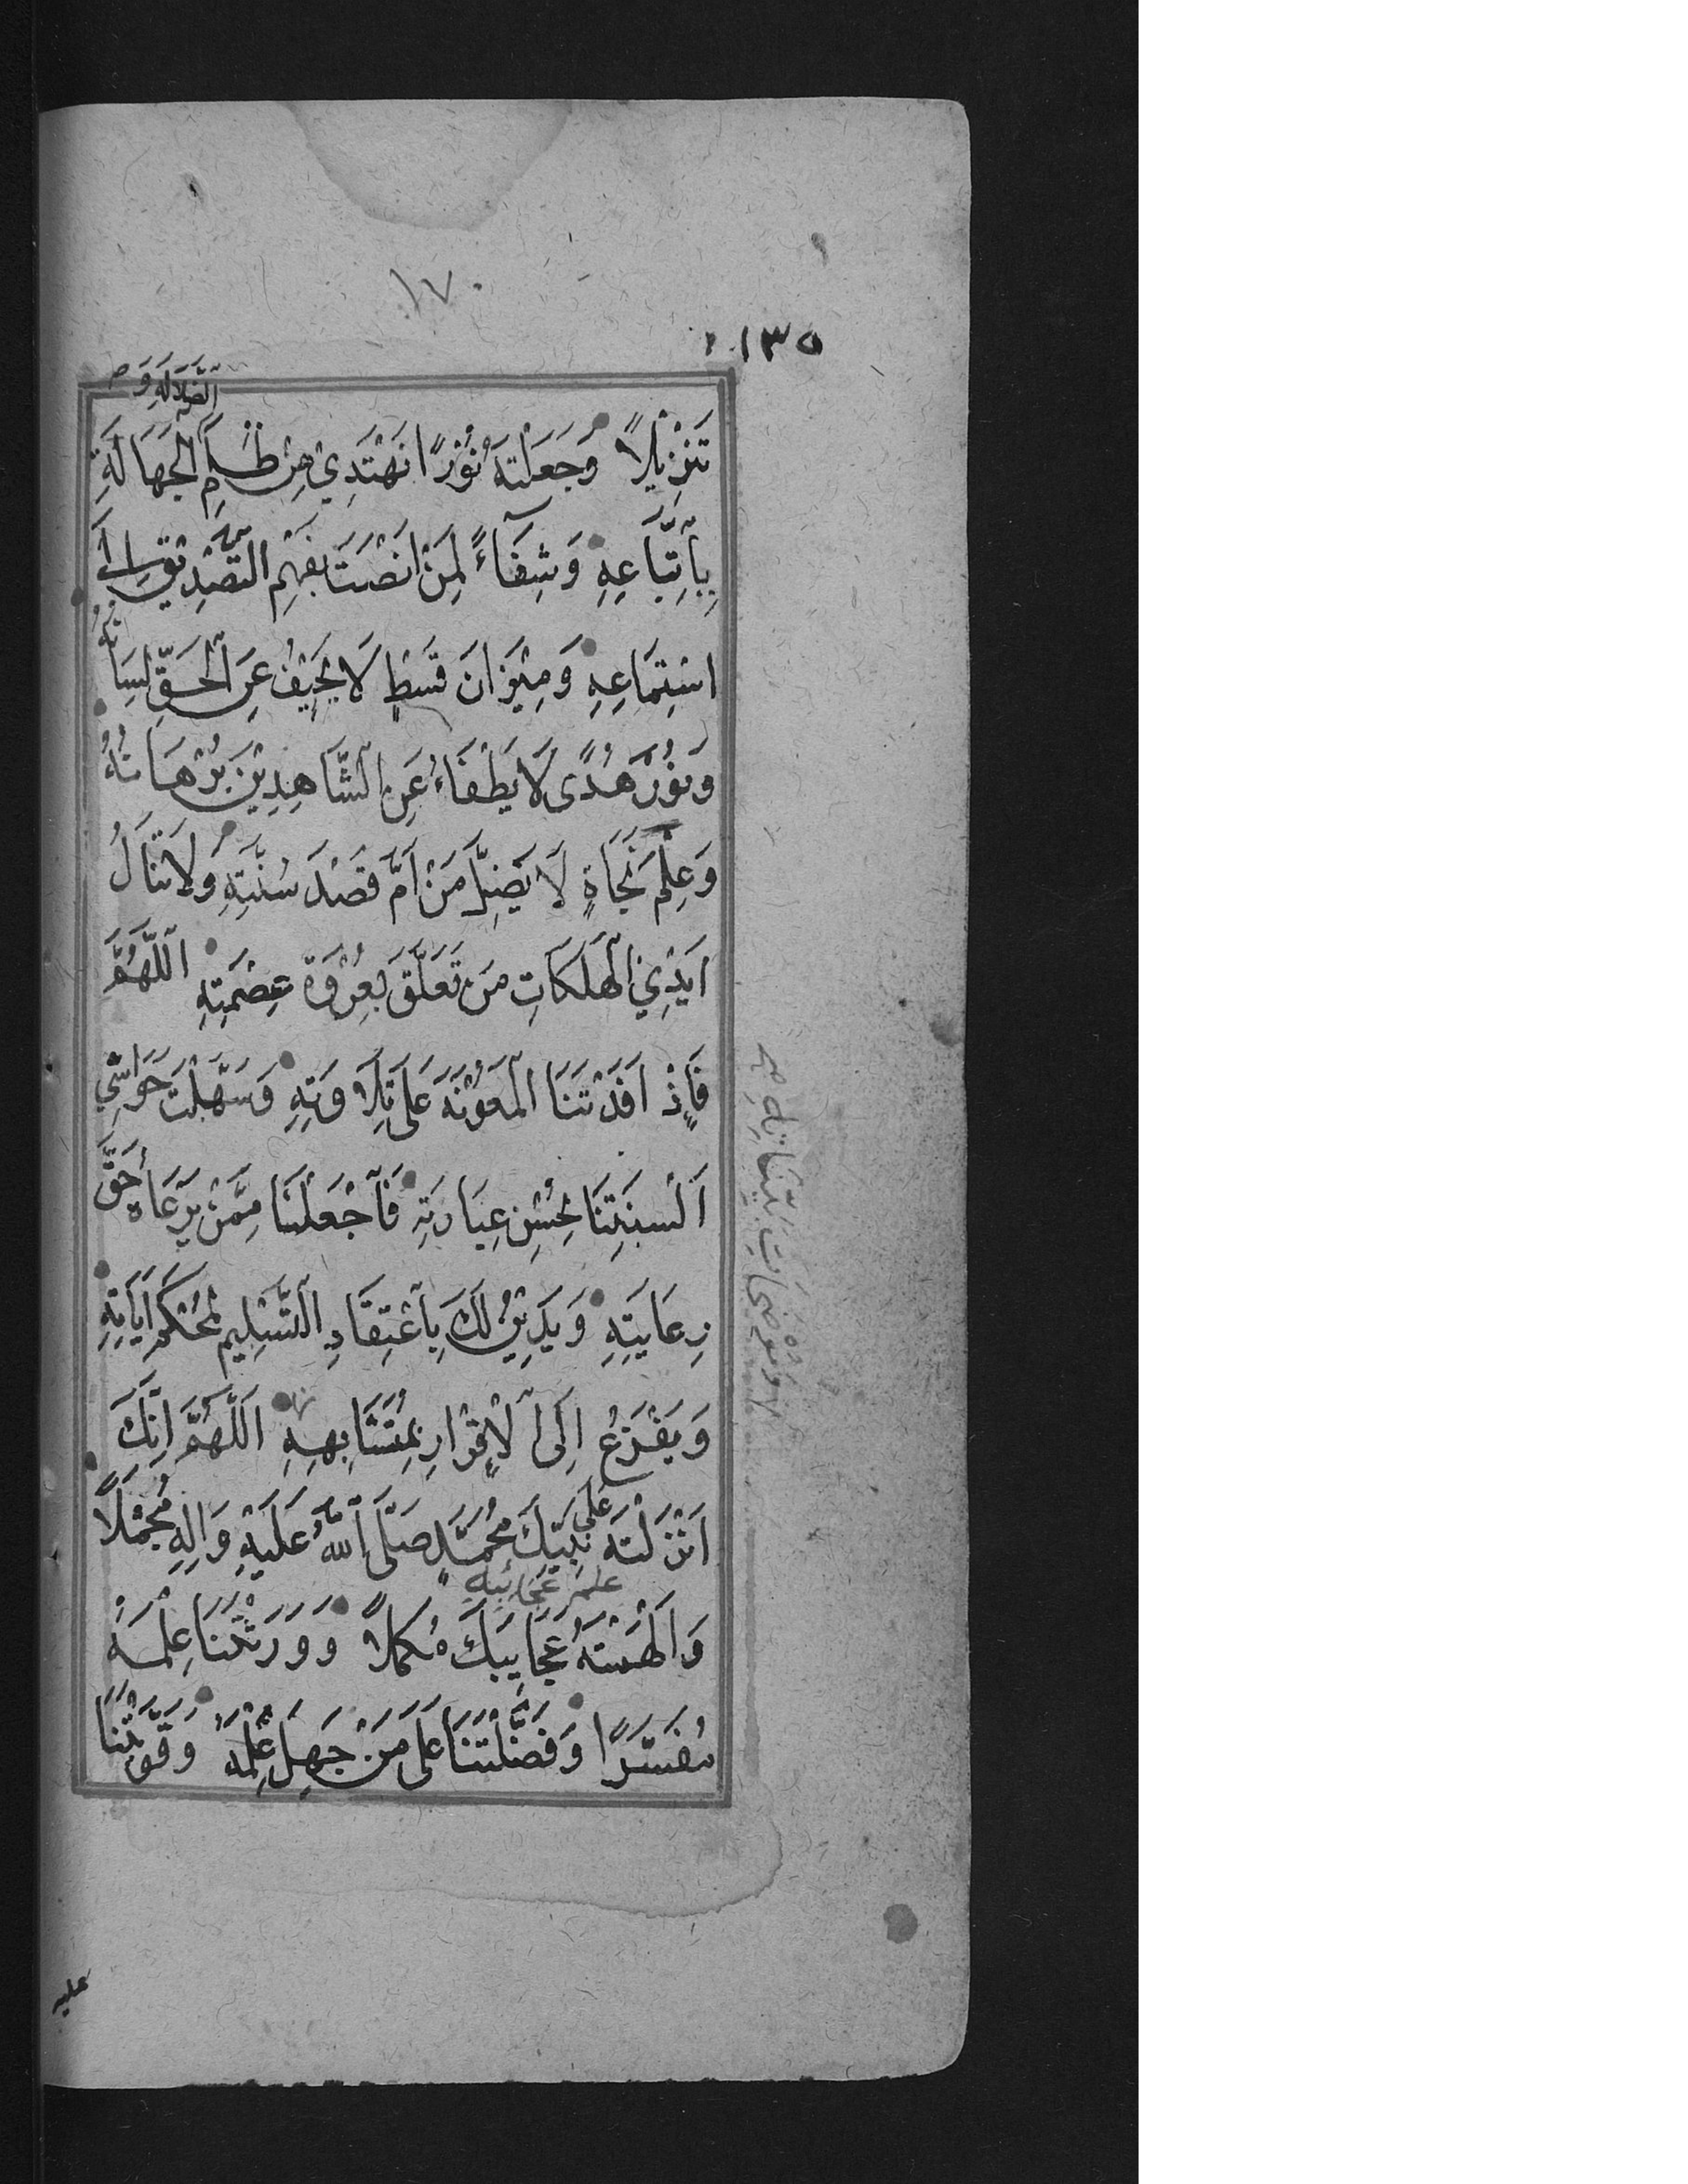 ١٧٠
١٣٥
اَلضَّلَالَةِ وَ
تَنْزِيْلًا وَجَعَلْتَهُ نُوْرًا نَهْتَدِيْ مِنْ ظُلَمِ الْجَهَالَةِ
بِاَتِّبَاعِهِ وَشِفَآءً لِمَنْ اَنْصَتَ بِفَهْمِ التَّصْدِيْقِ اِلَى
اسْتِمَاعِهِ وَمِيْزَانَ قِسْطٍ لَا يَحِيْفُ عَنِ الْحَقِّ لِسَانُهُ
وَنُوْرَ هُدًى لَا يَطْفَاءُ عَنِ الشَّاهِدِيْنَ بُرْهَانُهُ
وَعَلَمَ نَجَاةٍ لَا يَضِلُّ مَنْ اَمَّ قَصْدَ سُنَّتِهِ وَلَا تَنَالُ
اَيْدِيْ الْهَلَكَاتِ مَنْ تَعَلَّقَ بِعُرْوَةِ عِصْمَتِهِ اَللّٰهُمَّ
فَاِذْ اَفَدْتَنَا الْمَعُوْنَةَ عَلَى تِلَاوَتِهِ وَسَهَّلْتَ حَوَاشِيَ
اَلْسِنَتِنَا بِحُسْنِ عِبَارَتِهِ فَاجْعَلْنَا مِمَّنْ يَرْعَاهُ حَقَّ
رِعَايَتِهِ وَيَدِيْنُ لَكَ بِاعْتِقَادِ التَّسْلِيْمِ لِمُحْكَمِ اٰيَاتِهِ
وَيَفْزَعُ اِلَى الْاِقْرَارِ بِمُتَشَابِهِهِ اَللّٰهُمَّ اِنَّكَ
وَمُوْضَحَاتِ بَيِّنَاتِهِ
اَنْزَلْتَهُ عَلَى نَبِيِّكَ مُحَمَّدٍ صَلَّى اللّٰهُ عَلَيْهِ وَاٰلِهِ مُجْمَلًا
عِلْمَ عَجَائِبِهِ
وَاَلْهَمْتَهُ عَجَايِبَكَ مُكَمَّلًا وَوَرَّثْتَنَا عِلْمَهُ
مُفَسَّرًا وَفَضَّلْتَنَا عَلَى مَنْ جَهِلَ عِلْمَهُ وَقَوَّيْتَنَا
عليه